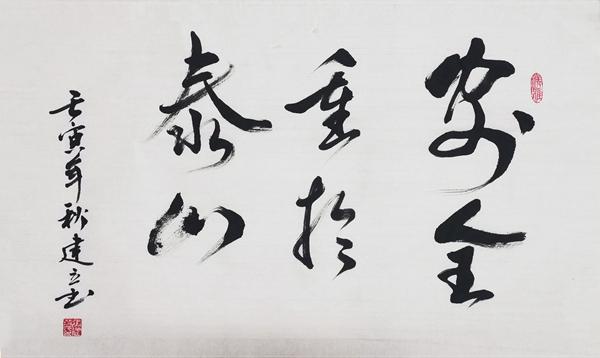 安全
重於
泰山
壬寅年秋建立书